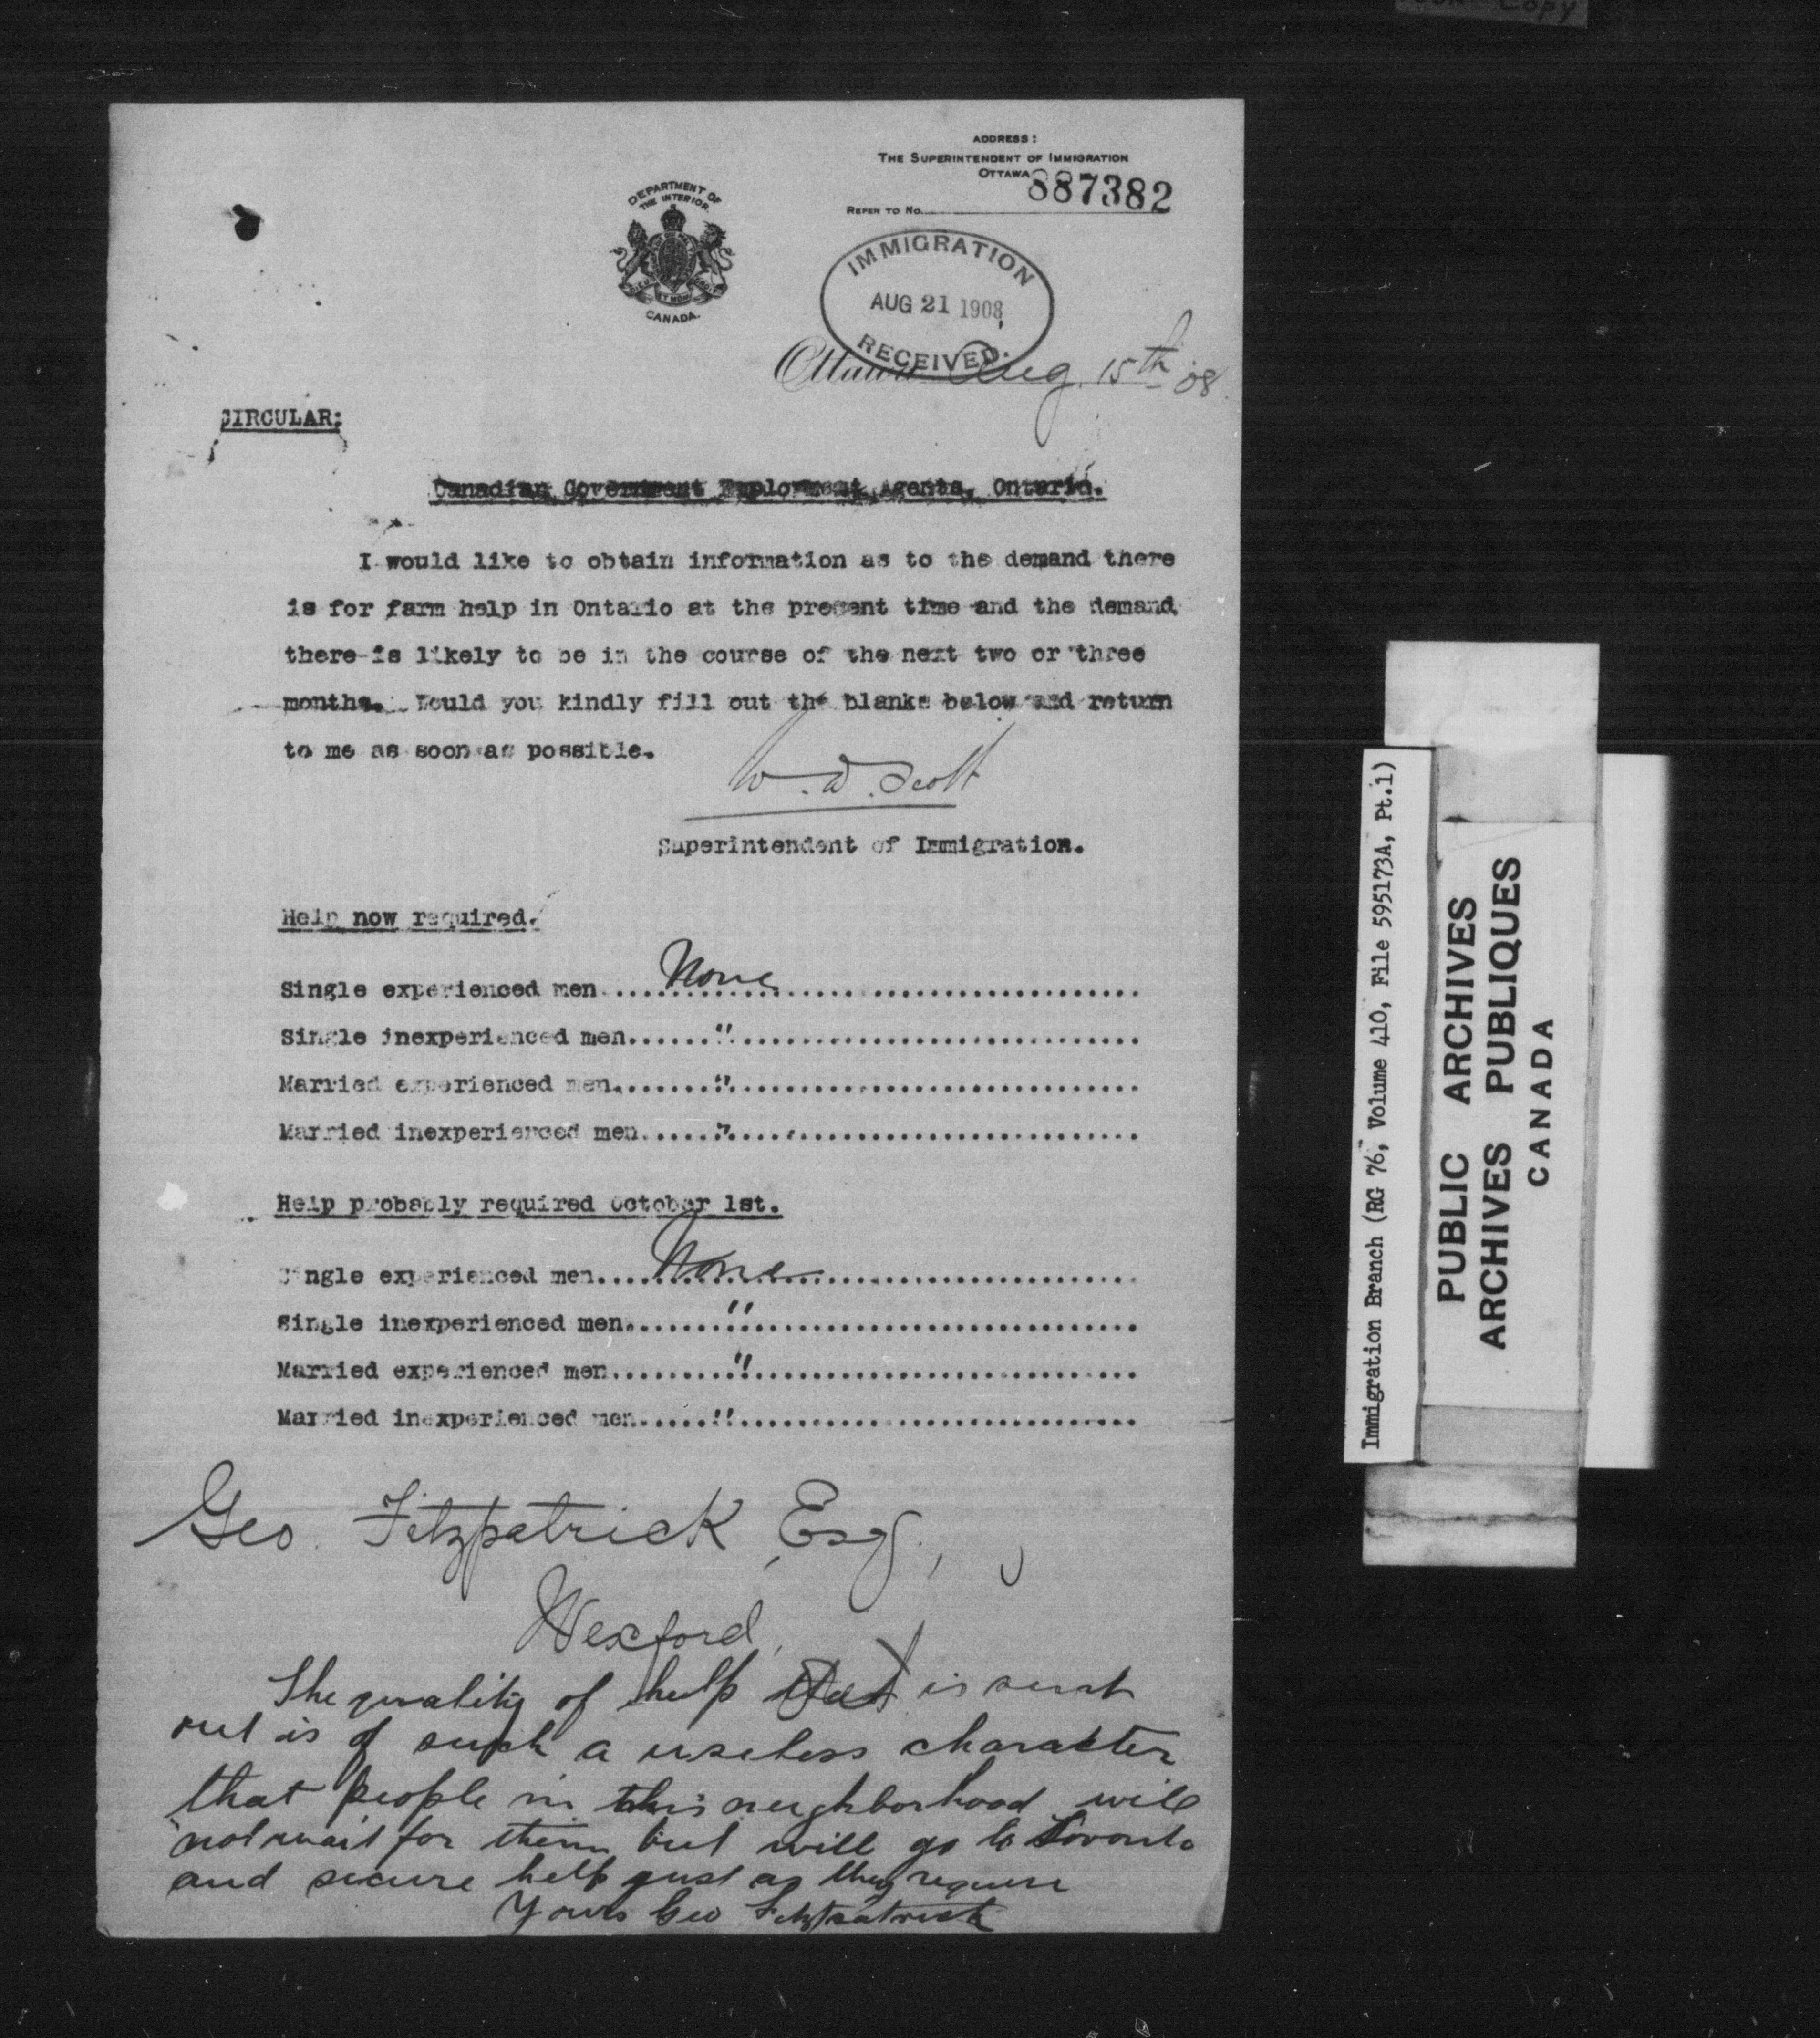 Copy
ADDRESS:
THE SUPERINTENDENT OF IMMIGRATION
OTTAWA
887382
REFER TO No.
DEPARTMENT OF
THE INTERIOR.
CANADA.
IMMIGRATION
AUG 21 1908
RECEIVED.
Ottawa Aug. 15th '08.
CIRCULAR:
Canadian Government Employment Agents, Ontario.
I would like to obtain information as to the demand there
is for farm help in Ontario at the present time and the demand
there is likely to be in the course of the next two or three
months. Would you kindly fill out the blanks below and return
to me as soon as possible.
W. D. Scott
Superintendent of Immigration.
Help now required.
Single experienced men....None....
Single inexperienced men......"....
Married experienced men......."....
Married inexperienced men....."....
Help probably required October 1st.
Single experienced men....None....
Single inexperienced men......."....
Married experienced men........"....
Married inexperienced men....."....
Geo. Fitzpatrick, Esq.,
Wexford,
The quality of help that is sent
out is of such a useless character
that people in this neighborhood will
not wait for them but will go to Toronto
and secure help just as they require
Yours Geo Fitzpatrick
Immigration Branch (RG 76, Volume 410, File 595173A, Pt.1)
PUBLIC ARCHIVES
ARCHIVES PUBLIQUES
CANADA